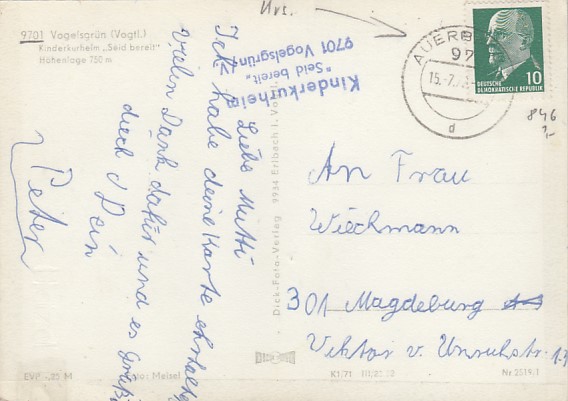 9701 Vogelsgrün (Vogtl.)
Kinderkurheim „Seid bereit"
Höhenlage 750 m
Kinderkurheim
"Seid bereit"
9701 Vogelsgrün
AUERB
97
15.-7.
d
DEUTSCHE
DEMOKRATISCHE REPUBLIK
10
846
Liebe Mutti
Ich habe deine Karte erhalten
vielen Dank dafür und es grüßt
dich Dein
Peter
Dick-Foto-Verlag 9934 Erlbach i. Vogtl.
An Frau
Wiechmann
301 Magdeburg
Viktor v. Unruhstr. 13
EVP -,25 M
Foto: Meisel
K1/71
Nr 2519.1